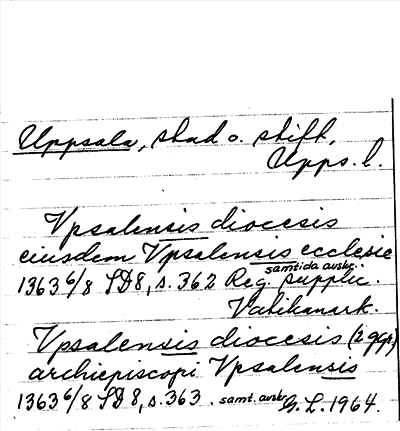 Uppsala, stad o. stift,
Upps. l.
Vpsalensis diocesis
eiusdem Vpsalensis ecclesie
samtida avskr.
1363 6/8 SD8, s. 362 Reg. supplic.
Vatikanark.
Vpsalensis diocesis (2 ggr)
archiepiscopi Vpsalensis
1363 6/8 SD8, s. 363. samt. avskr. G. L. 1964.